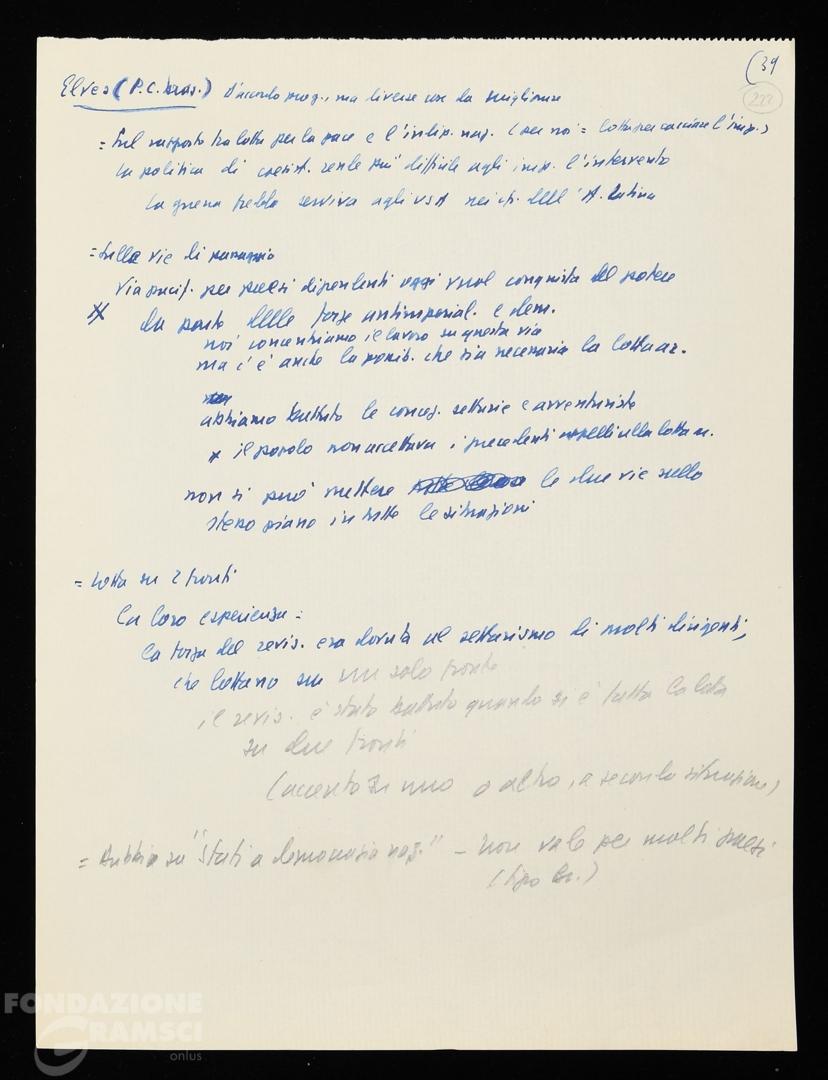 (39
222
Elves (P.C. bras.) d'accordo prog., ma diverse cose da migliorare
= Sul rapporto tra lotta per la pace e l'indip. naz. (per noi = lotta per cacciare l'imp.)
la politica di coesist. rende più difficile agli imp. l'intervento
la guerra fredda serviva agli USA nei cfr. dell'A. Latina
= Sulla vie di passaggio
via pacif. per paesi dipendenti oggi vuol conquista del potere
da parte delle forze antimperial. e dem.
noi concentriamo il lavoro su questa via
ma c'è anche la possib. che sia necessaria la lotta ar.
abbiamo battuto le concez. settarie e avventuriste
x il popolo non accettava i precedenti appelli alla lotta a.
non si può mettere le due vie sullo
stesso piano in tutte le situazioni
= Lotta su 2 fronti
la loro esperienza:
la forza del revis. era dovuta al settarismo di molti dirigenti,
che lottano su un solo fronte
il revis. è stato battuto quando si è fatta la lotta
su due fronti
(accento su uno o altro, a seconda situazione)
= Dubbio su "Stati a democrazia naz." – Non vale per molti paesi
(tipo Br.)
FONDAZIONE
GRAMSCI
onlus